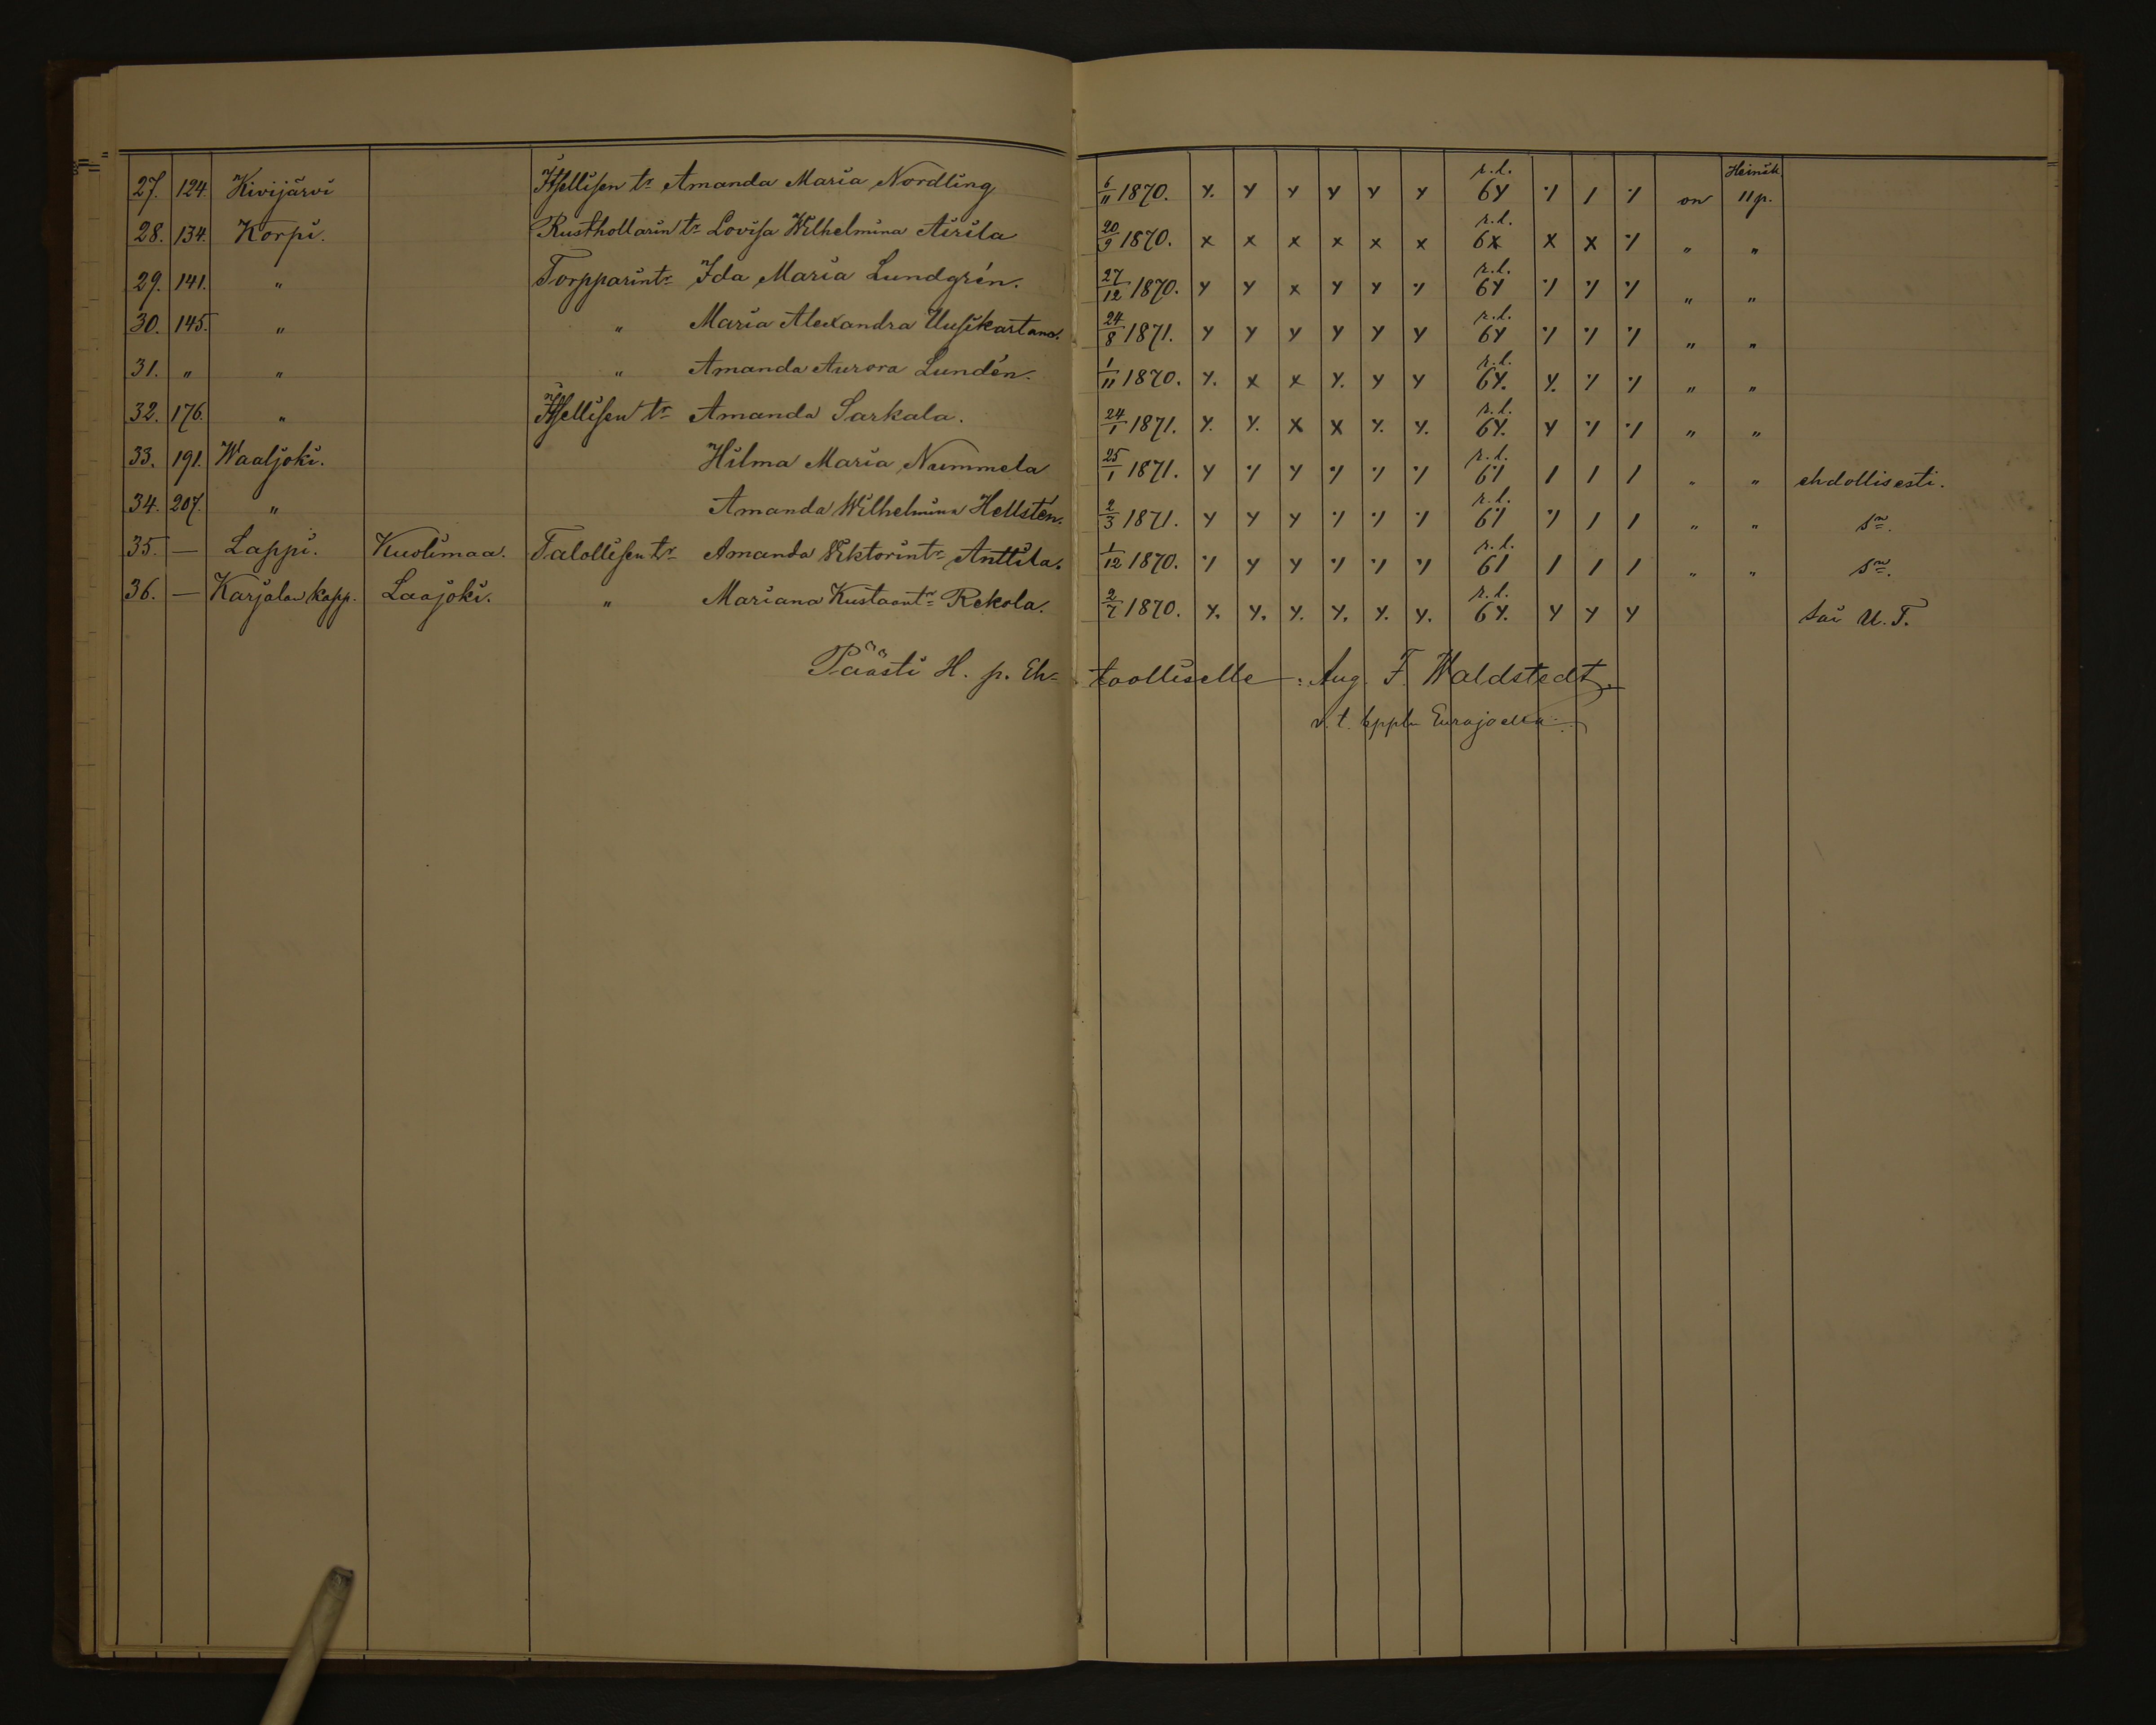 Heinäk.
27. 124. Kivijärvi Itsellisen tr Amanda Maria Nordling 6/11 1870. r.l. 6 on 11 p.
28. 134. Korpi. Rusthollarin tr Lovisa Wilhelmina Airila 20/9 1870. x x x x x x r.l. 6x x x " "
29. 141. " Torpparin tr Ida Maria Lundgrén. 27/12 1870. r.l. 6 " "
30. 145. " " Maria Alexandra Uusikartano. 24/8 1871. r.l. 6 " "
31. " " " Amanda Aurora Lundén. 1/11 1870. r.l. 6 " "
32. 176. " Itsellisen tr Amanda Sarkala. 24/1 1871. r.l. 6 " "
33. 191. Waaljoki. Hilma Maria Nummela 25/1 1871. r.l. 6 " " ehdollisesti.
34. 207. " Amanda Wilhelmina Hellstén. 2/3 1871. r.l. 6 " " sm.
35. — Lappi. Kuolimaa. Talollisen tr Amanda Wiktorintr Anttila. 1/12 1870. r.l. 6 " " sm.
36. — Karjalan kapp. Laajoki. " Mariana Kustaantr Rekola. 2/7 1870. r.l. 6 sai U. T.
Päästi H. p. Eh=toolliselle: Aug. F. Waldstedt.
v. t. kppln Eurajoella.